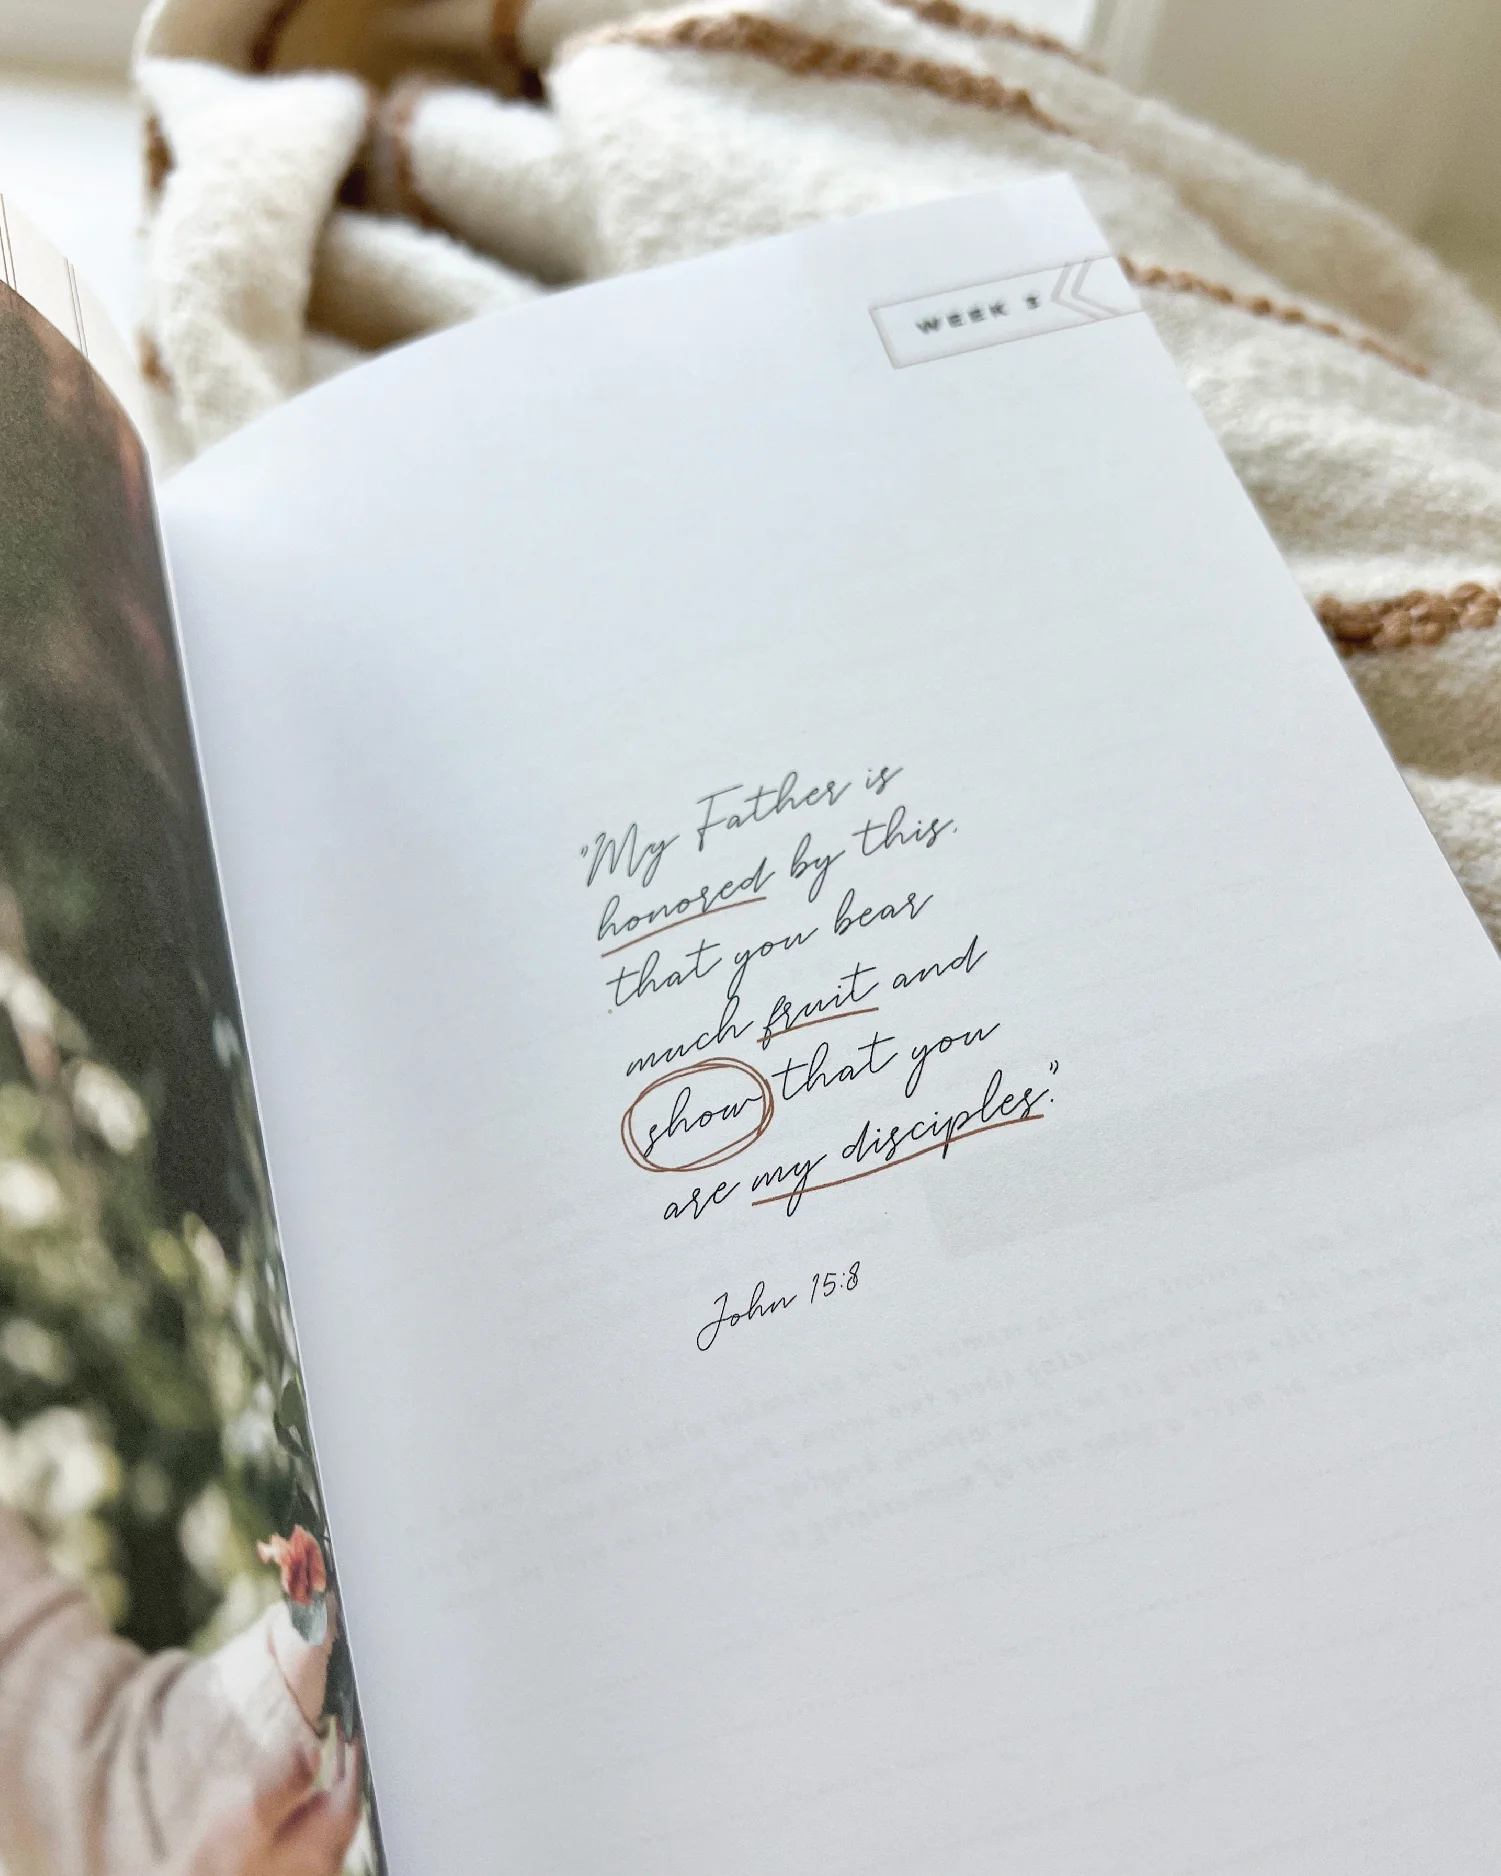 WEEK
"My Father is
honored by this,
that you bear
much fruit and
show that you
are my disciples."
John 15:8